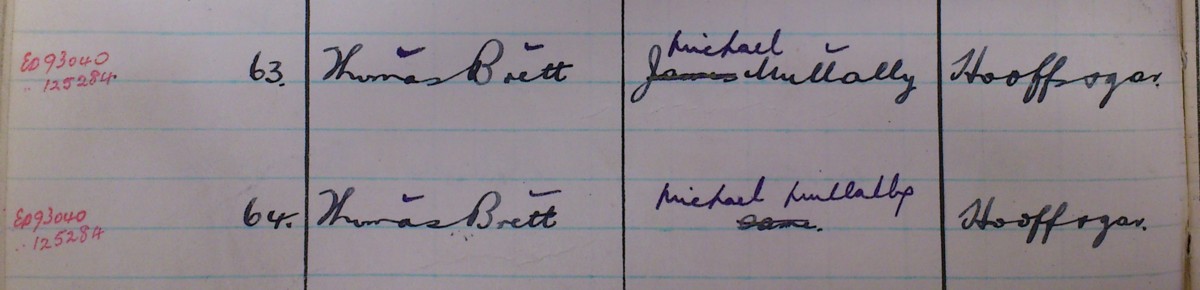 ED93040 63. Thomas Brett Michael James Mullally Hooff sgar.
.. 125284.
ED93040 64. Thomas Brett Michael Mullally same. Hooff sgar.
.. 125284